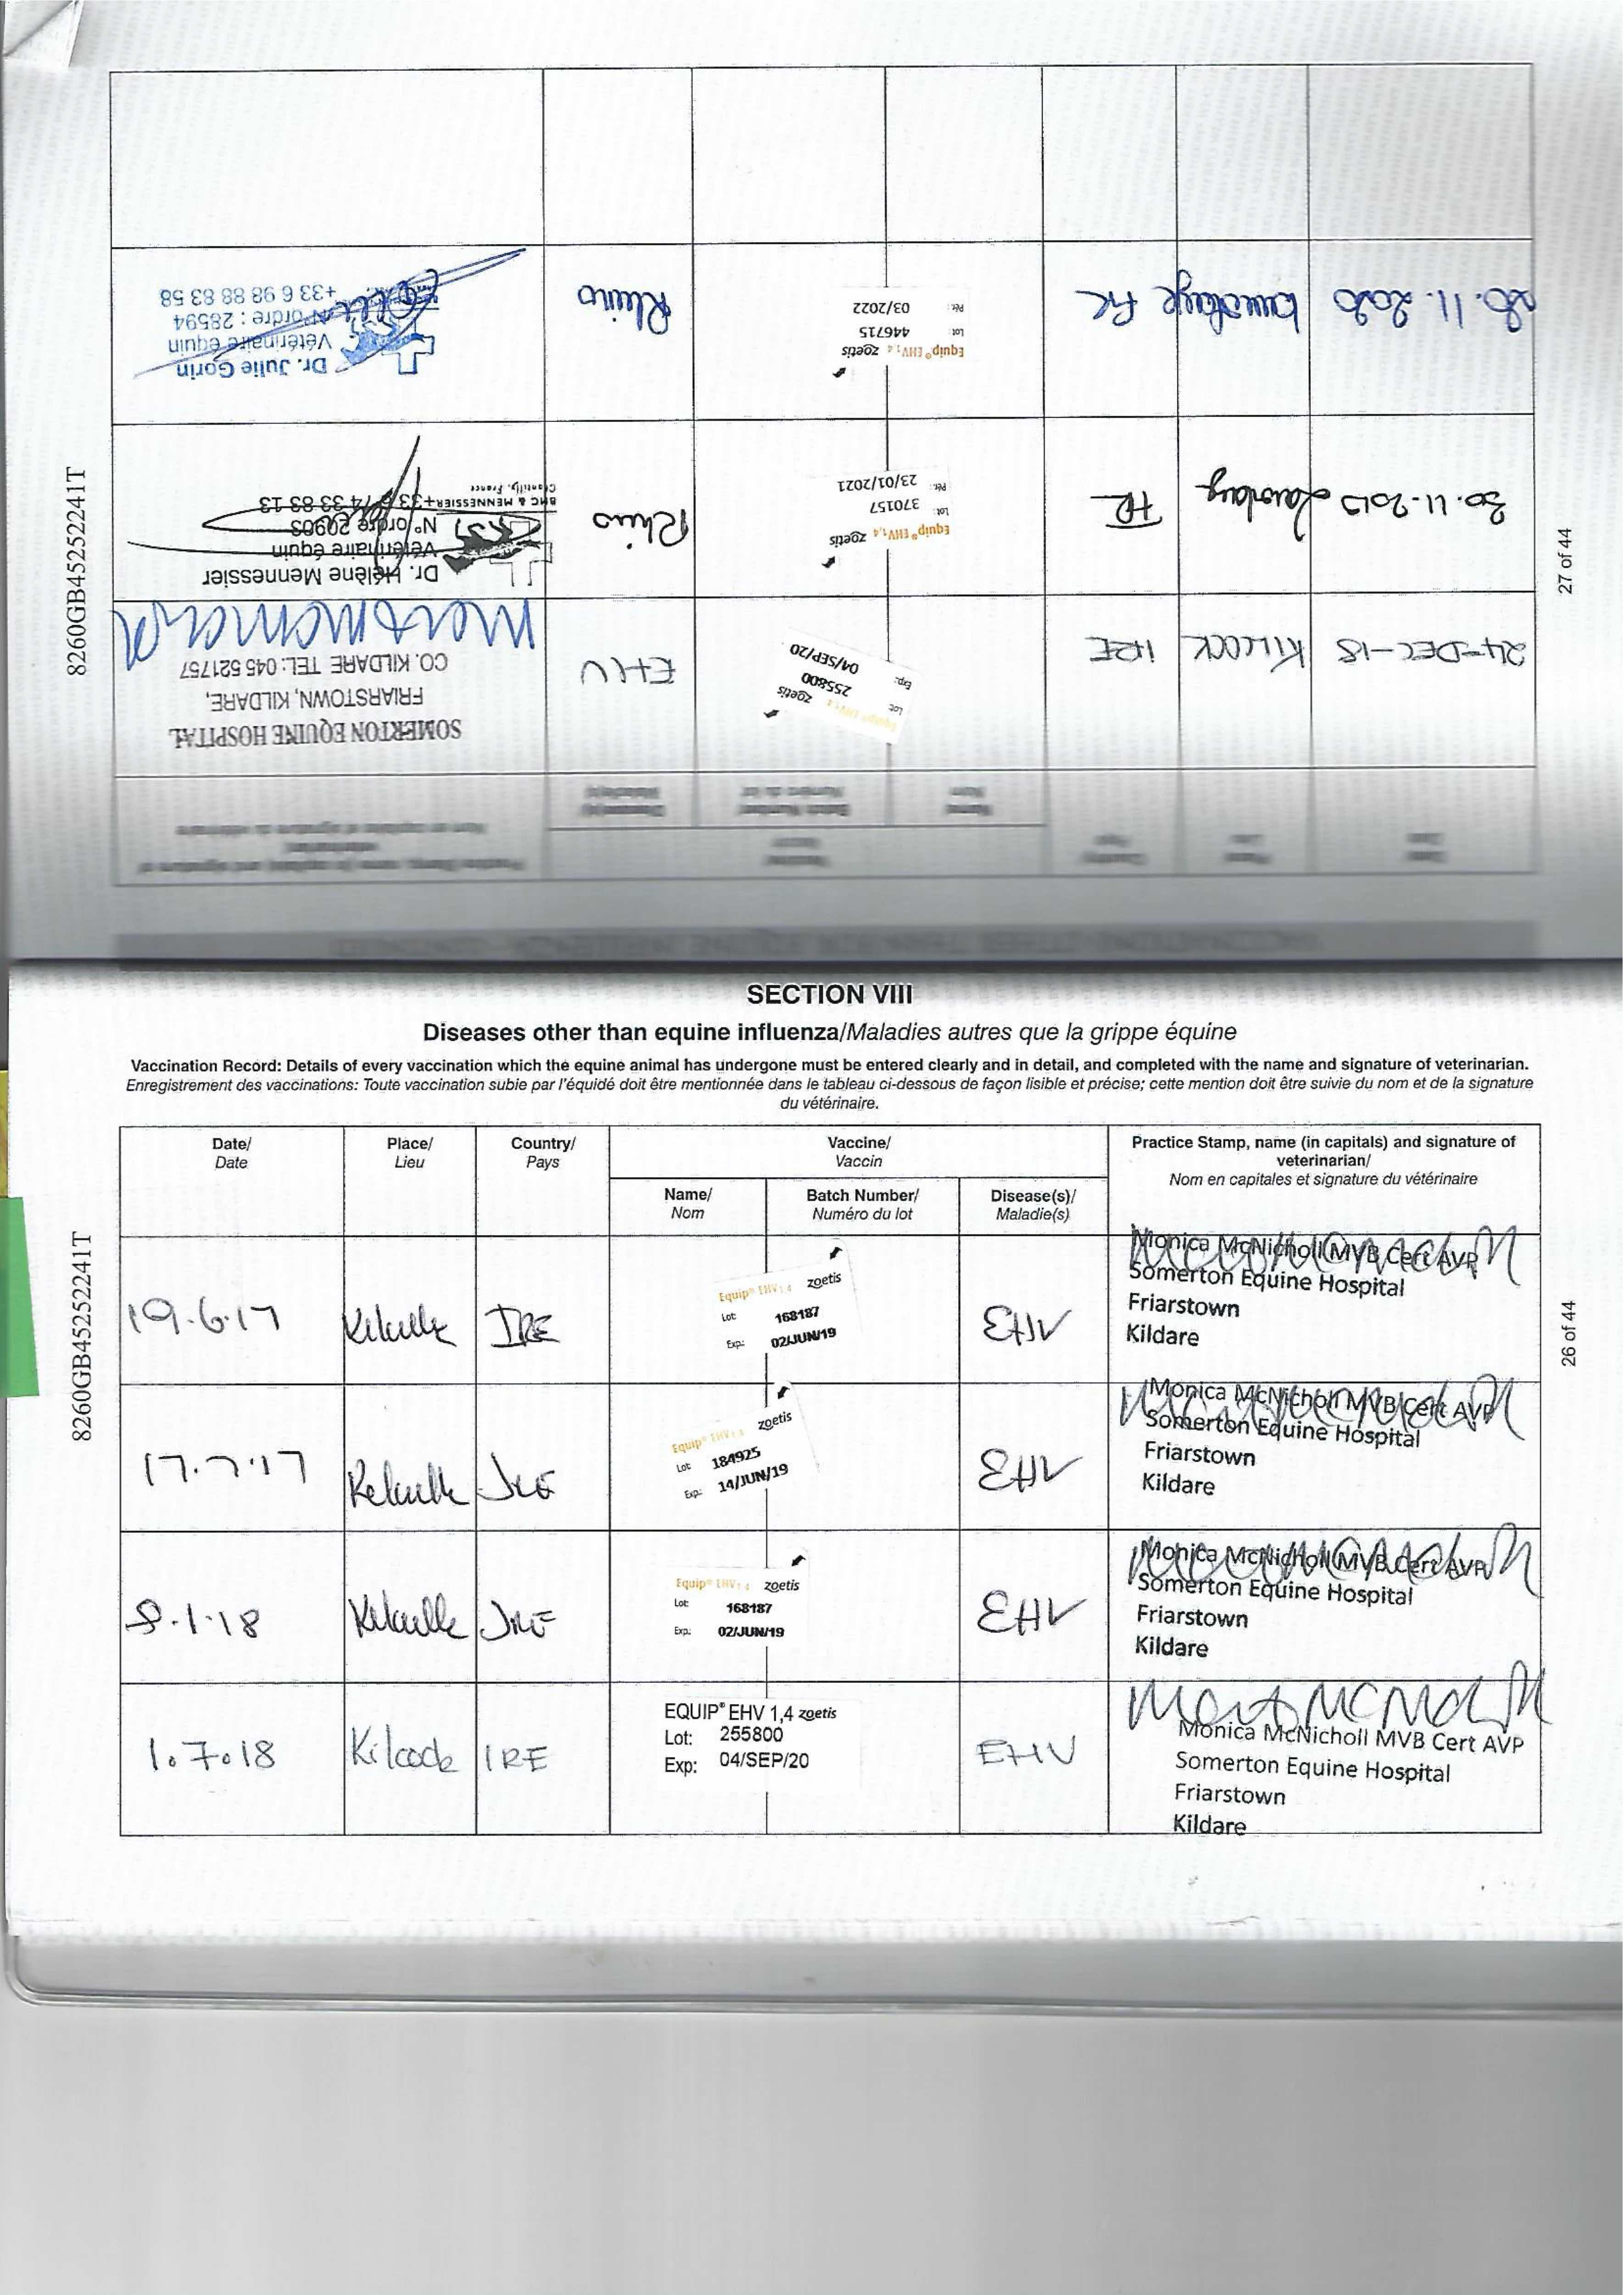 SECTION VIII
Diseases other than equine influenza/Maladies autres que la grippe équine
Vaccination Record: Details of every vaccination which the equine animal has undergone must be entered clearly and in detail, and completed with the name and signature of veterinarian.
Enregistrement des vaccinations: Toute vaccination subie par l'équidé doit être mentionnée dans le tableau ci-dessous de façon lisible et précise; cette mention doit être suivie du nom et de la signature
du vétérinaire.
Date/
Date
Place/
Lieu
Country/
Pays
Vaccine/
Vaccin
Name/
Nom
Batch Number/
Numéro du lot
Disease(s)/
Maladie(s)
Practice Stamp, name (in capitals) and signature of
veterinarian/
Nom en capitales et signature du vétérinaire
19.6.17
IRE
Equip® EHV 1,4 zoetis
Lot: 168187
Exp: 02/JUN/19
EHV
Monica McNicholl MVB Cert AVP
Somerton Equine Hospital
Friarstown
Kildare
17.7.17
Equip® EHV 1,4 zoetis
Lot: 184925
Exp: 14/JUN/19
EHV
Monica McNicholl MVB Cert AVP
Somerton Equine Hospital
Friarstown
Kildare
8.1.18
Equip® EHV 1,4 zoetis
Lot: 168187
Exp: 02/JUN/19
EHV
Monica McNicholl MVB Cert AVP
Somerton Equine Hospital
Friarstown
Kildare
1.7.18
Kilcock
IRE
EQUIP® EHV 1,4 zoetis
Lot: 255800
Exp: 04/SEP/20
EHV
Monica McNicholl MVB Cert AVP
Somerton Equine Hospital
Friarstown
Kildare
8260GB45252241T
26 of 44
24-DEC-18
KILCOCK
IRE
Equip® EHV 1,4 zoetis
Lot: 255800
Exp: 04/SEP/20
EHV
SOMERTON EQUINE HOSPITAL
FRIARSTOWN, KILDARE,
CO. KILDARE TEL: 045 521757
30.11.2019
FR
Equip® EHV 1,4 zoetis
Lot: 370157
Pér.: 23/01/2021
Rhino
Dr. Hélène Mennessier
Vétérinaire équin
N° ordre 20903
+33 6 74 33 83 13
BMC & MENNESSIER
Chantilly, France
28.11.2020
FR
Equip® EHV 1,4 zoetis
Lot: 446715
Pér.: 03/2022
Rhino
Dr. Julie Gorin
Vétérinaire équin
N° ordre : 28594
+33 6 98 88 83 58
8260GB45252241T
27 of 44